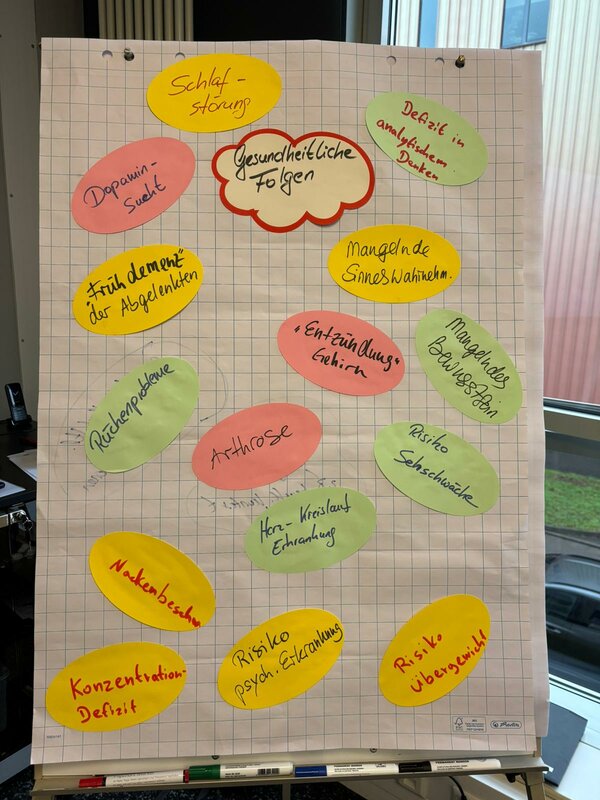 Schlaf-
störung
Defizit in
analytischem
Denken
Gesundheitliche
Folgen
Dopamin-
Sucht
Mangelnde
Sinneswahrnehm.
"Frühdemenz"
der Abgelenkten
"Entzündung"
Gehirn
Mangelndes
Bewusstsein
Rückenprobleme
Arthrose
Risiko
Sehschwäche
Herz-Kreislauf
Erkrankung
Nackenbeschw
Risiko
psych. Erkrankung
Risiko
Übergewicht
Konzentration-
Defizit
FSC